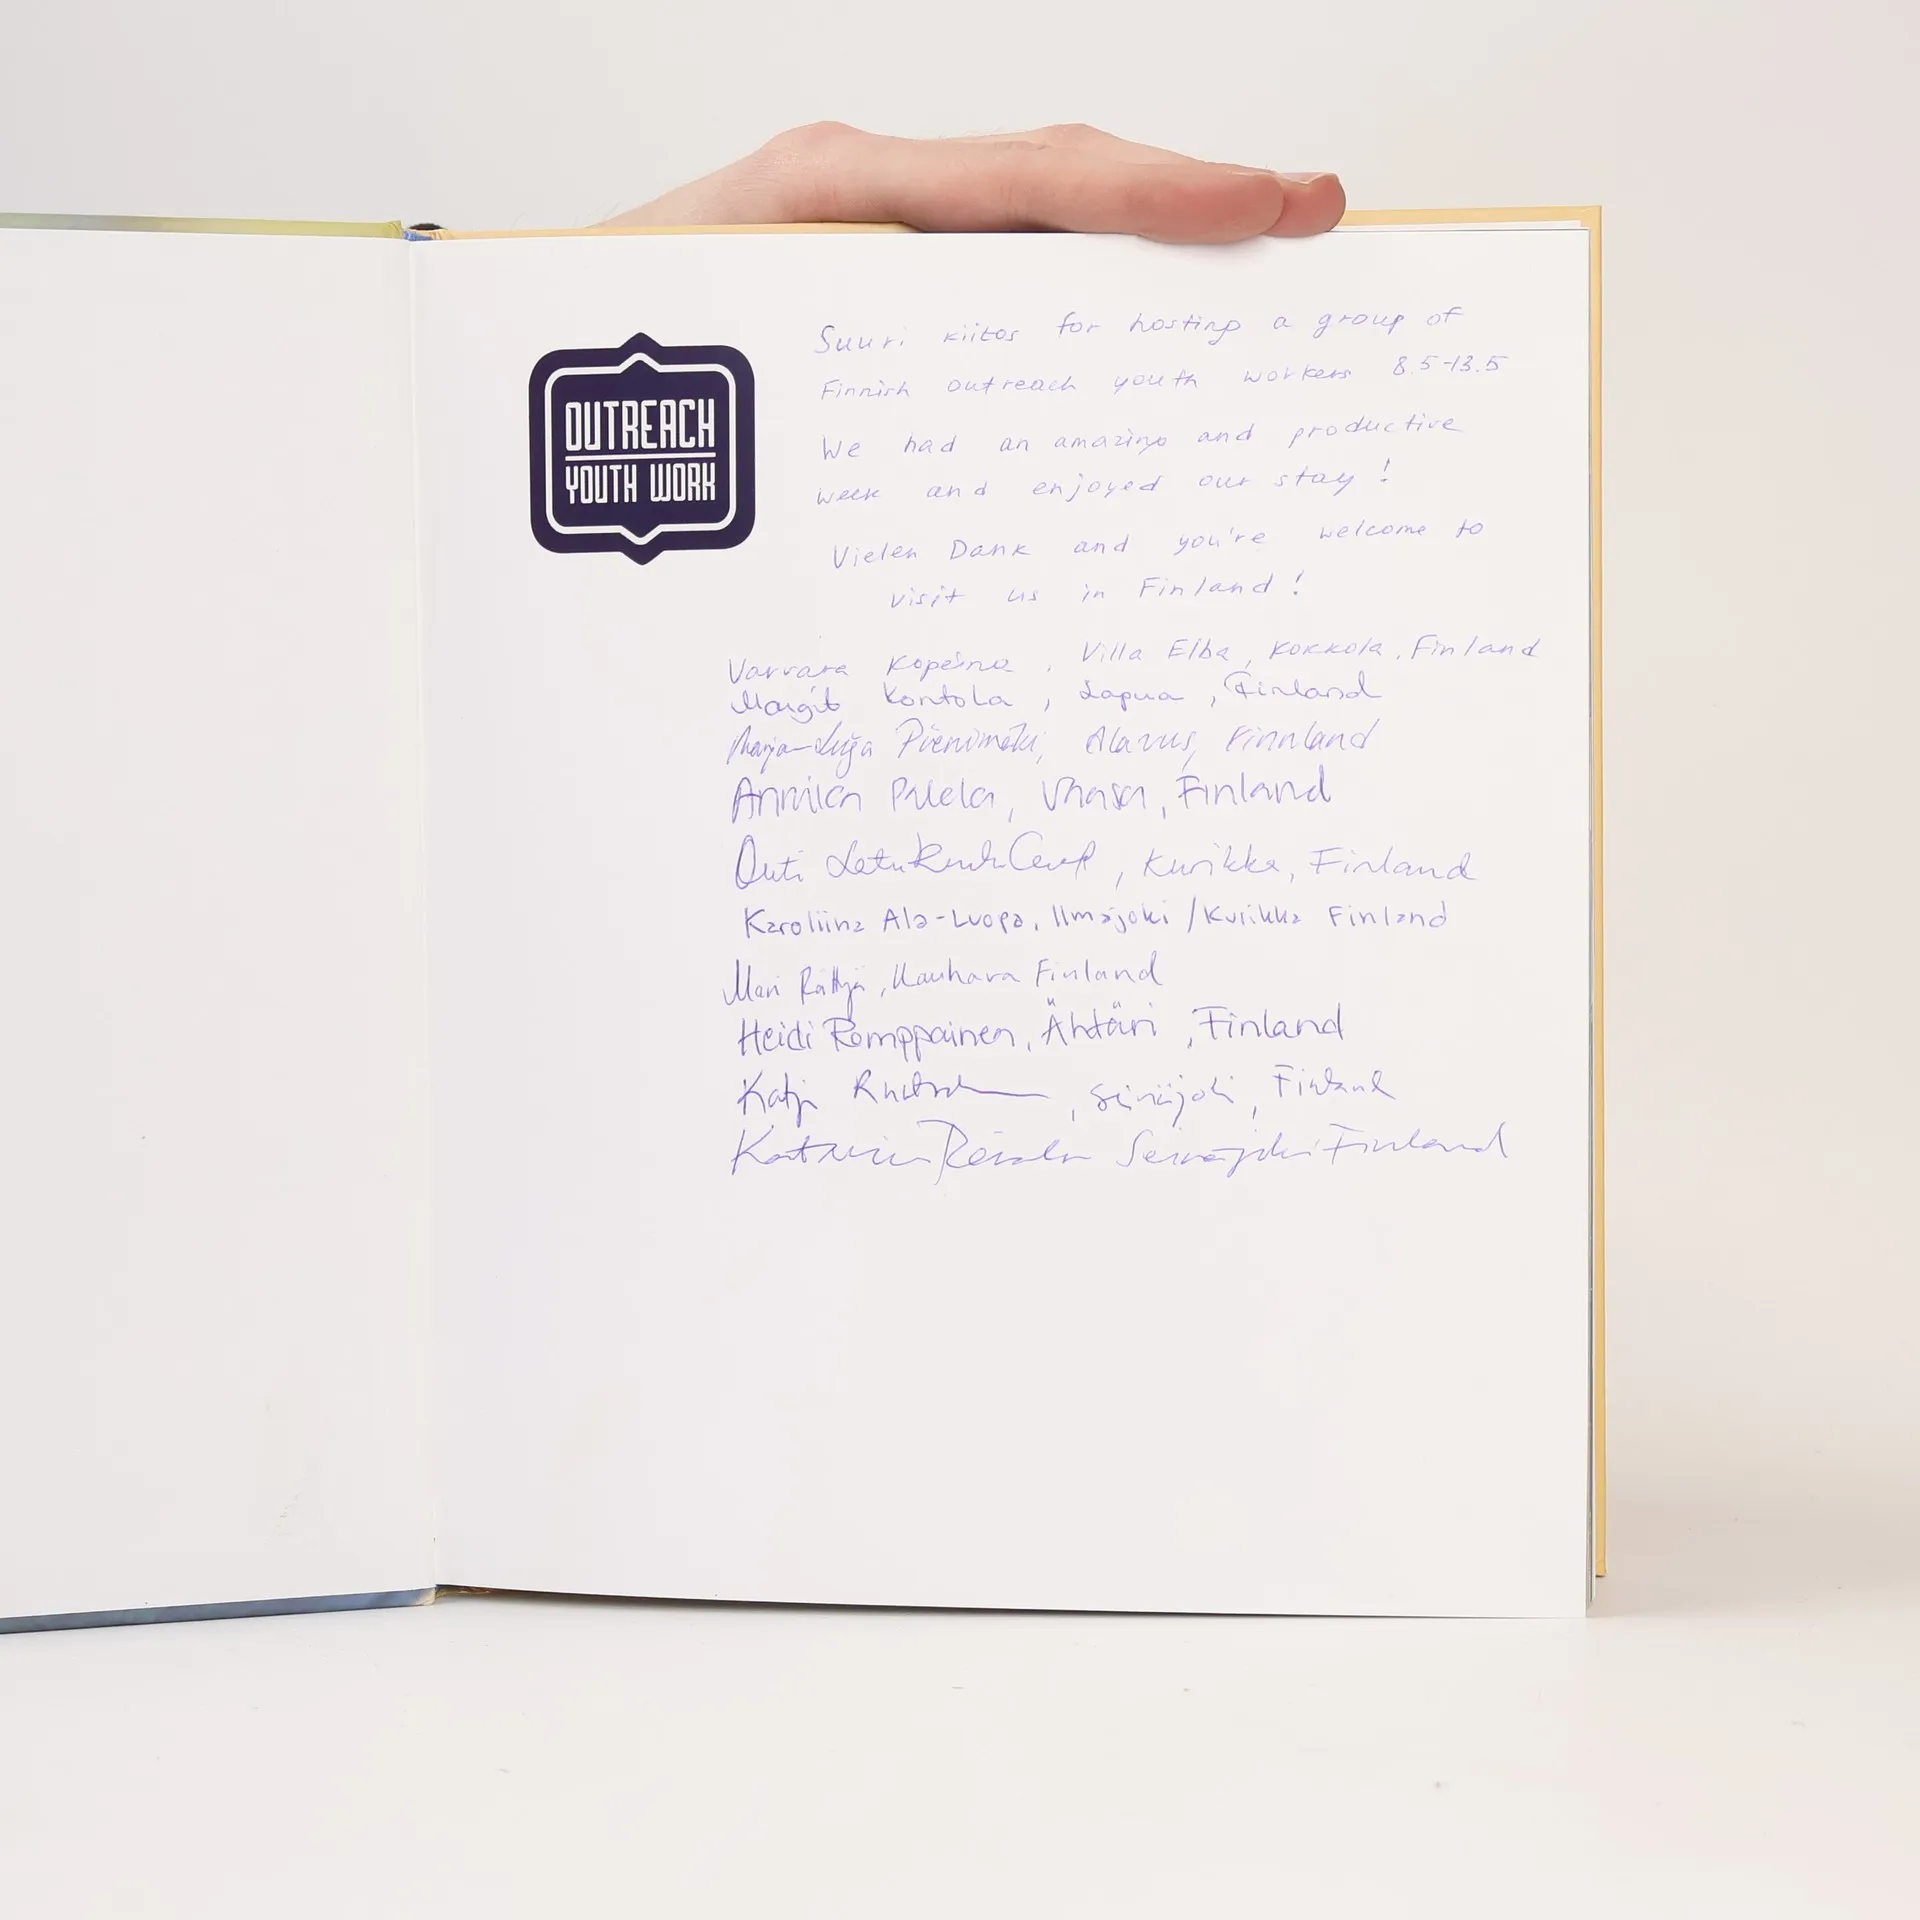 OUTREACH
YOUTH WORK
Suuri kiitos for hosting a group of
Finnish outreach youth workers 8.5-13.5
We had an amazing and productive
week and enjoyed our stay!
Vielen Dank and you're welcome to
visit us in Finland!
Varvara , Villa Elba, Kokkola, Finland
Margit Kontola, Lapua, Finland
Alavus, Finnland
Annika Palela, Vaasa, Finland
Outi , Kurikka, Finland
Karoliina Ala-Luopa, Ilmajoki / Kurikka Finland
Mari , Kauhava Finland
Heidi Romppainen, Ähtäri, Finland
Katja , Seinäjoki, Finland
Seinäjoki Finland